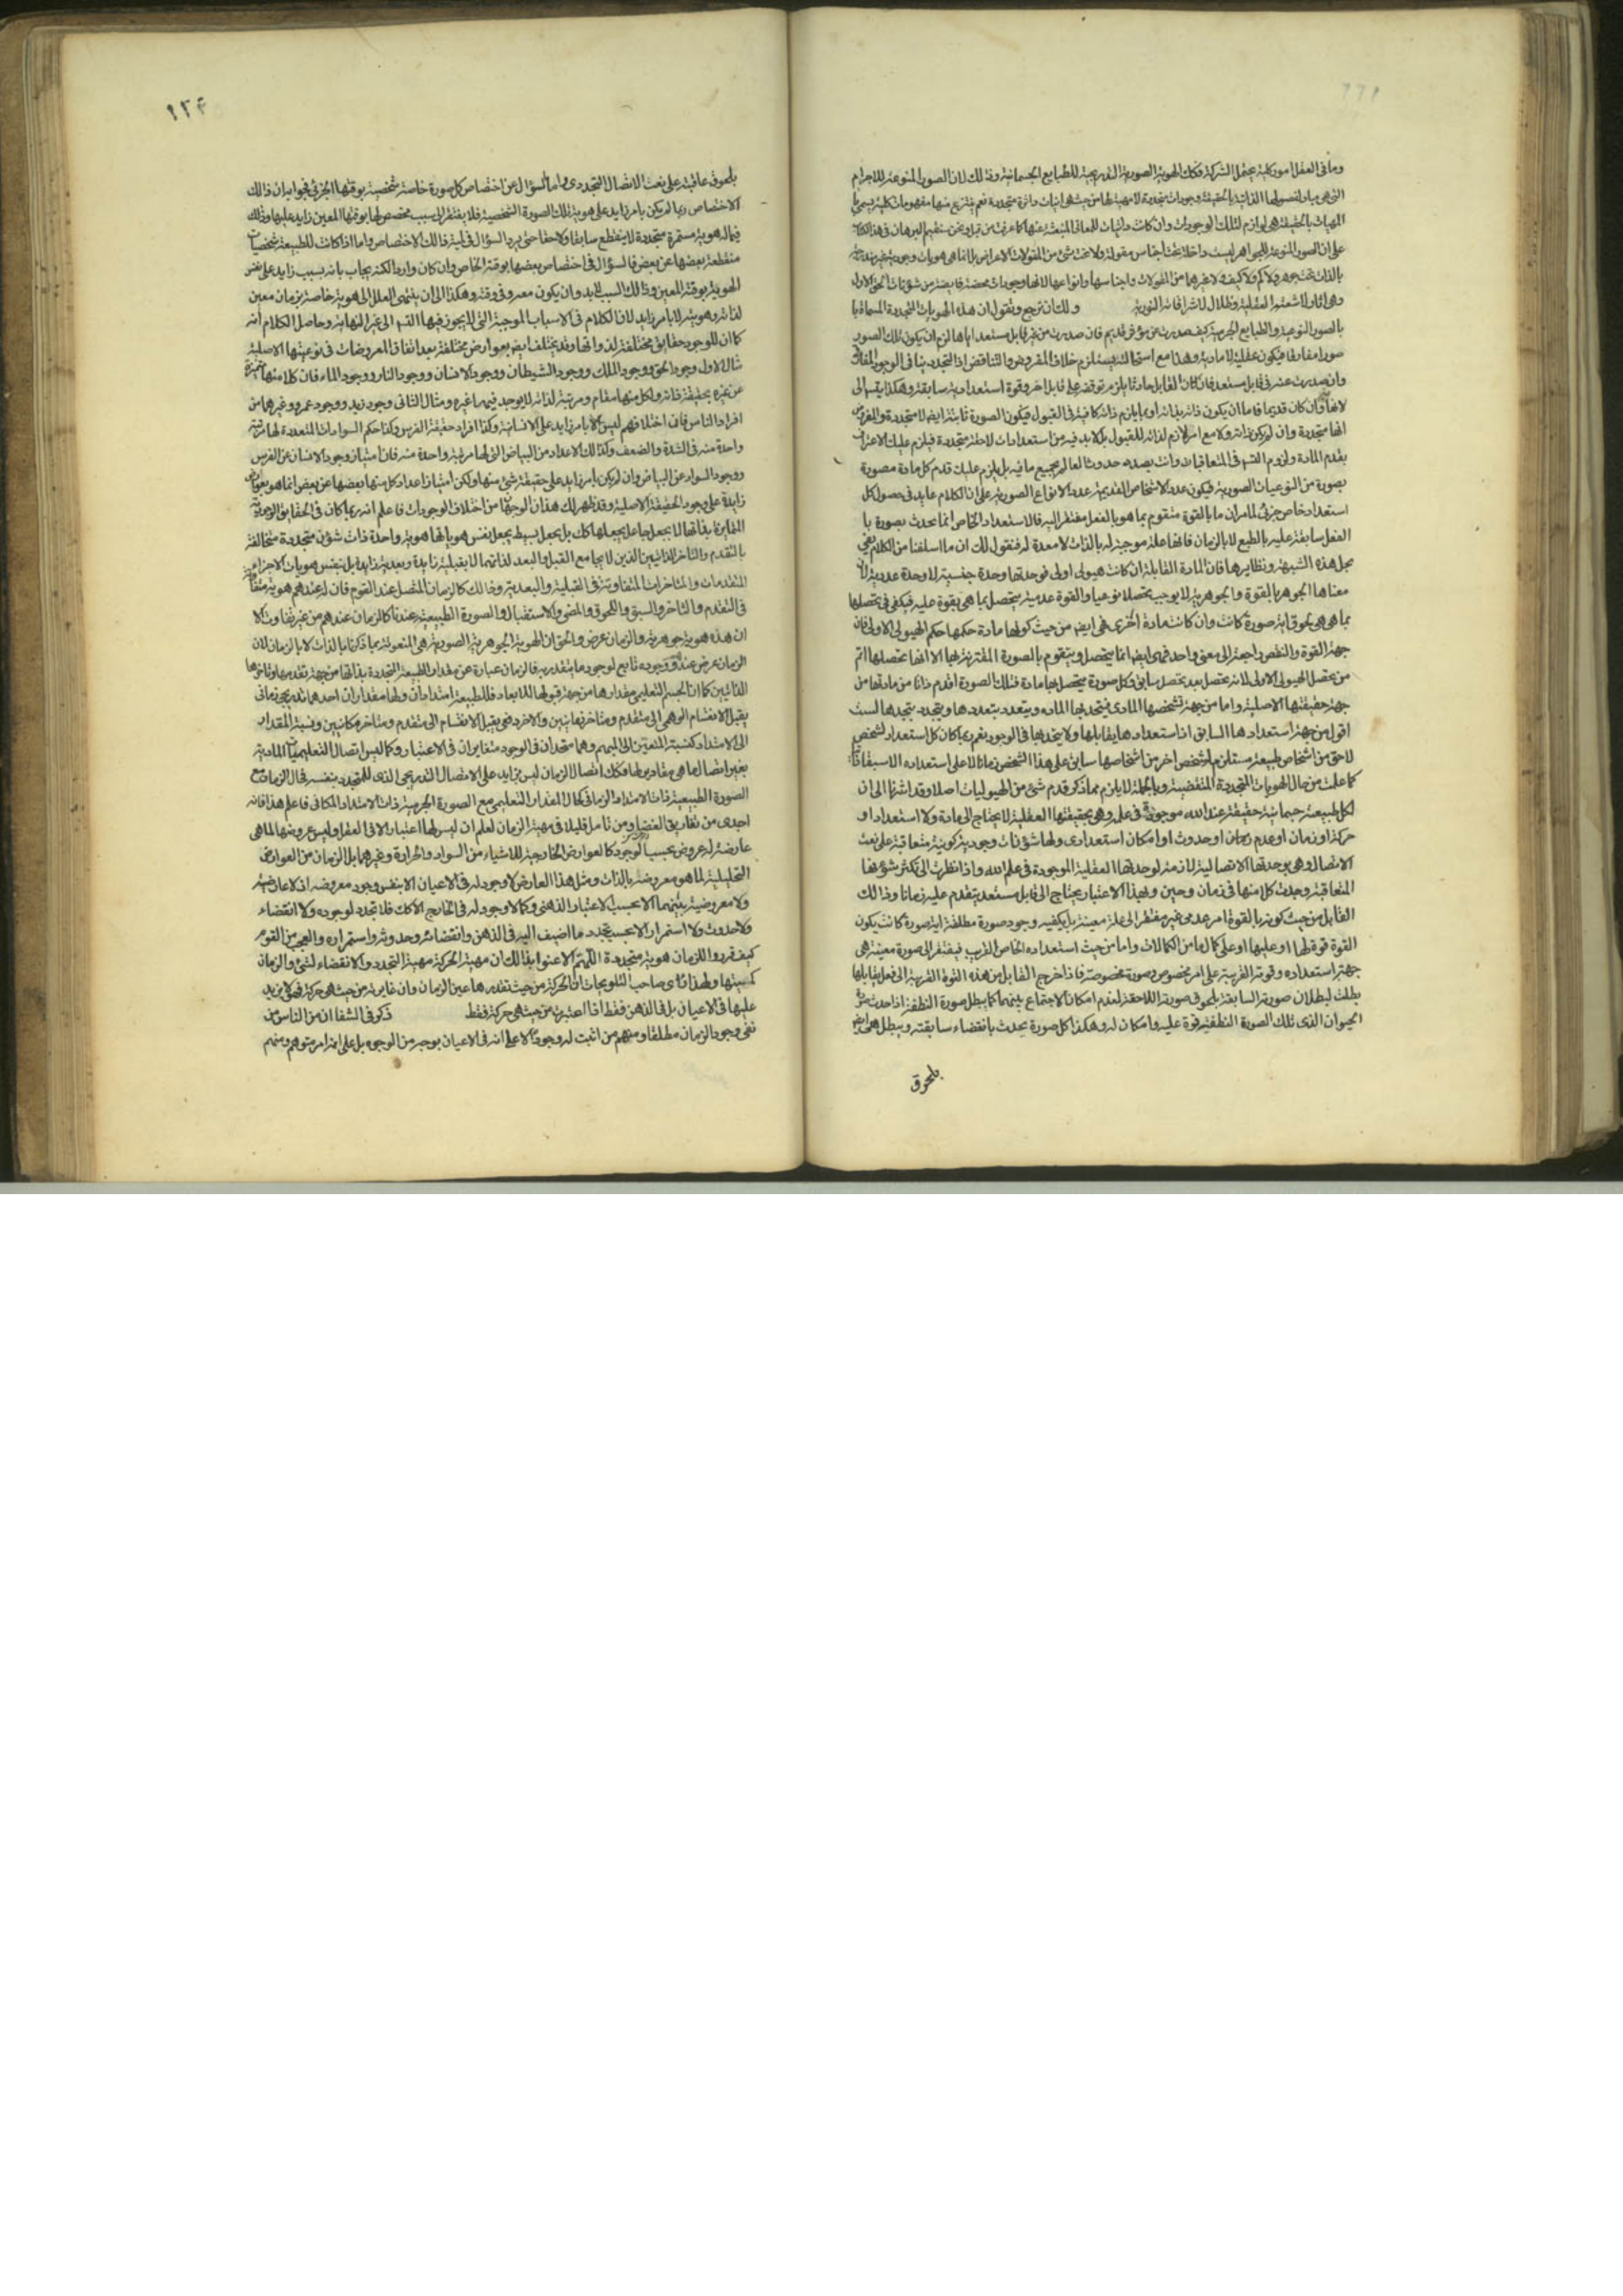 وما فى العقل امور كلية يحتمل الشركة فكذلك الهوية الصورية التدريجية للطبايع الجسمانية وذلك لان الصور المنوعة للاجرام
التى هى مباد لفصولها الذاتية بالحقيقة وجودات متجددة لا مهية لها من حيث هى انيات داثرة متجددة نعم ينتزع منها مفهومات كلية يسمى با
المهيات بالحقيقة هى لوازم لتلك الوجودات وان كانت ذاتيات للمعانى المنبعثة عنها كما عرفت من قبل ونحن سنقيم البرهان فى هذا الكتاب
على ان الصور المنوعة للجواهر ليست داخلة تحت اجناس مقولة ولا تحت شئ من المقولات الاعراض بل انما هى هويات وجودية غير مندرجة
بالذات تحت جوهر ولا كم ولا كيف ولا غيرهما من المقولات واجناسها وانواعها لانها وجودات محضة فايضة من شؤنات الحق الاول
وهى اثار لاشعته العقلية وظلال لاشراقاته النورية ولك ان ترجع وتقول ان هذه الهويات المتجددة المسماة با
بالصور النوعية والطبايع الجرمية كيف صدرت عن مؤثر قديم فان صدرت من غير قابل مستعد اياها لزم ان يكون تلك الصور
صورا مفارقا فيكون عقلية لا مادية وهذا مع استحالته يستلزم خلاف المفروض والتناقض اذ التجدد ينافى الوجود المفارقى
وان صدرت عنه فى قابل مستعد فان كان القابل حادثا يلزم توقفه على قابل اخر وقوة استعدادية سابقة وهكذا يتس الى
لا نهاية وان كان قديما فاما ان يكون ذاته بذاته او بما يلزم ذاته كافية فى القبول فيكون الصورة ثابتة ايضا لا متجددة والمفروض
انها متجددة وان لم يكن ذاته ولا مع امر لازم لذاته للقبول بل لا بد فيه من استعدادات لاحقة متجددة فيلزم عليك الاعتراف
بقدم المادة ولزوم التس فى المتعاقبات وانت بصدد حدوث العالم بجميع ما فيه بل يلزم عليك قدم كل مادة مصورة
بصورة من النوعيات الصورية فيكون عدد الاشخاص القديمة عدد الانواع الصورية على ان الكلام عايد فى حصول كل
استعداد خاص جزئى لما مر ان ما بالقوة متقوم بما هو بالفعل مفتقر اليه فالاستعداد الخاص انما يحدث بصورة با
الفعل سابقة عليه بالطبع لا بالزمان فانها علة موجبة له بالذات لا معدة له فنقول لك ان ما اسلفنا من الكلام يفى
بحل هذه الشبهة ونظايرها فان المادة القابلة ان كانت هيولى اولى فوحدتها وحدة جنسية لا وحدة عددية لان
معناها الجوهر بالقوة والجوهرية لا يوجب تحصلا نوعيا والقوة عدمية يتحصل بما هى بقوة عليه فيكفى فى تحصلها
بما هى هى لحوق اية صورة كانت وان كانت مادة اخرى فهى ايض من حيث كونها مادة حكمها حكم الهيولى الاولى فان
جهة القوة والنقص راجعة الى معنى واحد فهى ايضا انما يتحصل ويتقوم بالصورة المقترنة بها الا انها تحصلها اتم
من تحصل الهيولى الاولى لانه تحصل بعد تحصل سابق وكل صورة يتحصل بها مادة فتلك الصورة اقدم ذاتا من مادتها من
جهة حقيقتها الاصلية واما من جهة تشخصها المادى فيتحد بها المادة ويتعدد بتعددها ويتجدد بتجددها لست
اقول من جهة استعدادها السابق اذ استعدادها يقابلها ولا يتحد بها فى الوجود نعم ربما كان كل استعداد لشخص
لاحق من اشخاص طبيعة مستلزم لشخص اخر من اشخاصها سابق على هذا الشخص زمانا لا على استعداده الا سبقا ذاتيا
كما علمت من حال الهويات المتجددة المنقضية وبالجملة لا يلزم مما ذكر قدم شئ من الهيوليات اصلا وقد اشرنا الى ان
لكل طبيعة جسمانية حقيقة عند الله موجودة فى علمه وهى بحقيقتها العقلية لا يحتاج الى مادة ولا استعداد او
حركة او زمان او عدم او حدوث او امكان استعدادى ولها شؤنات وجودية كونية متعاقبة على نعت
الاتصال وهى بوحدتها الاتصالية لازمة لوحدتها العقلية الموجودة فى علم الله واذا نظرت الى تكثر شؤنها
المتعاقبة وجدت كلا منها فى زمان وحين ولهذا الاعتبار يحتاج الى قابل مستعد يتقدم عليه زمانا وذلك
القابل من حيث كونه بالقوة امر عدمى غير مفتقر الى علة معينة بل يكفيه وجود صورة مطلقة اية صورة كانت يكون
القوة قوة لها او عليها او على كمال ما من الكمالات واما من حيث استعداده الخاص القريب فيفتقر الى صورة معينة هى
جهة استعداده وقوته القريبة على امر مخصوص وصورة مخصوصة فاذا خرج القابل من هذه القوة القريبة الى فعل يقابلها
بطلت لبطلان صورته السابقة بلحوق صورته اللاحقة لعدم امكان الاجتماع بينهما كما يبطل صورة النطفة اذا حدثت صورة
الحيوان الذى تلك الصورة النطفية قوة عليه وامكان له وهكذا كل صورة يحدث بانقضاء سابقته ويبطل هى ايض
بلحوق
١٣٤
بلحوق عاقبة على نعت الاتصال التجددى واما السؤال عن اختصاص كل صورة خاصة شخصية بوقتها الجزئى فجوابه ان ذلك
الاختصاص ربما لم يكن بامر زايد على هوية تلك الصورة الشخصية فلا يفتقر الى سبب مخصص لها بوقتها المعين زايد عليها وذلك
فيما له هوية مستمرة متجددة لا ينقطع سابقا ولا حقا حتى يرد السؤال فى لمية ذلك الاختصاص واما اذا كانت للطبيعة شخصيات
منقطعة بعضها عن بعض فالسؤال فى اختصاص بعضها بوقته الخاص وان كان واردا لكنه يجاب بانه بسبب زايد على نفس
الهوية بوقته المعين وذلك السبب لابد وان يكون معه وفى وقته وهكذا الى ان ينتهى العلل الى هوية خاصة بزمان معين
لذاته وهويته لا بامر زايد لان الكلام فى الاسباب الموجبة التى لا يجوز فيها التس الى غير النهاية وحاصل الكلام انه
كما ان للوجود حقايق مختلفة لذواتها وقد يختلف ايض بعوارض مختلفة بعد اتفاق المعروضات فى نوعيتها الاصلية
مثال الاول وجود الحق ووجود الملك ووجود الشيطان ووجود الانسان ووجود النار ووجود الماء فان كلا منها متميزة
عن غيره بحقيقة ذاته ولكل منها مقام ومرتبة لذاته لا يوجد فيهما غيره ومثال الثانى وجود زيد ووجود عمرو وغيرهما من
افراد الناس فان اختلافهم ليس الا بامر زايد على الانسانية وكذا افراد حقيقة الفرس وكذا حكم السوادات المتعددة لها مرتبة
واحدة منه فى الشدة والضعف وكذلك الاعداد من البياض التى لها مرتبة واحدة منه فان امتياز وجود الانسان عن الفرس
ووجود السواد عن البياض وان لم يكن بامر زايد على حقيقة شئ منها ولكن امتياز اعداد كل منها بعضها عن بعض انما هو بعوارض
زايدة على وجود الحقيقة الاصلية وقد ظهر لك هذان الوجهان من اختلاف الوجودات فاعلم انه ربما كان فى الحقايق الوجودية
المتمايزة بذاتها لا بجعل جاعل يجعلها كذلك بل يجعل بسيط يجعل نفس هوياتها هوية واحدة ذات شؤن متجددة متخالفة
بالتقدم والتاخر الذاتيين الذين لا يجامع القبل والبعد لذاتهما لا بقبلية زايدة وبعدية زايد بل بنفس هويات الاجزاء
المتقدمات والمتاخرات المتفاوتة فى القبلية والبعدية وذلك كالزمان المتصل عند القوم فان له عندهم هوية متفاوتة
فى التقدم والتاخر والسبق واللحوق والمضى والاستقبال والصورة الطبيعية عندنا كالزمان عندهم من غير تفاوت الا
ان هذه هوية جوهرية والزمان عرض والحق ان الهوية الجوهرية الصورية هى المنعوتة بما ذكرنا بالذات لا بالزمان لان
الزمان عرض عندهم ووجوده تابع لوجود ما يتقدر به فالزمان عبارة عن مقدار الطبيعة المتجددة بذاتها من جهة تقدمها وتاخرها
الذاتيين كما ان الجسم التعليمى مقدارها من جهة قبولها للابعاد فللطبيعة امتدادان ولها مقداران احدهما تدريجى زمانى
يقبل الانقسام الوهمى الى متقدم ومتاخر زمانيين والاخر دفعى يقبل الانقسام الى متقدم ومتاخر مكانيين ونسبة المقدار
الى الامتداد كنسبة المتعين الى المبهم وهما متحدان فى الوجود متغايران فى الاعتبار وكما ليس اتصال التعليميات المادية
بغير اتصال ما هى مقادير لها فكذلك اتصال الزمان ليس بزايد على الاتصال التدريجى الذى للمتجدد بنفسه فحال الزمان مع
الصورة الطبيعية ذات الامتداد الزمانى كحال المقدار التعليمى مع الصورة الجرمية ذات الامتداد المكانى فاعلم هذا فانه
اجدى من تفاريق العصا ومن تامل قليلا فى مهية الزمان لعلم ان ليس لها اعتبار الا فى العقل وليس عروضها لما هى
عارضة له عروض بحسب الوجود كالعوارض الخارجية للاشياء من السواد والحرارة وغيرهما بل الزمان من العوارض
التحليلية لما هو معروضه بالذات ومثل هذا العارض لا وجود له فى الاعيان الا بنفس وجود معروضه اذ لا عارضية
ولا معروضية بينهما الا بحسب الاعتبار الذهنى وكما لا وجود له فى الخارج الا كذلك فلا تجدد لوجوده ولا انقضاء
ولا حدوث ولا استمرار الا بحسب تجدد ما اضيف اليه فى الذهن وانقضائه وحدوثه واستمراره والعجب من القوم
كيف قرروا للزمان هوية متجددة اللهم الا عنوا بذلك ان مهية الحركة مهية التجدد والانقضاء لشئ والزمان
كميتها ولهذا راى صاحب التلويحات ان الحركة من حيث تقدرها عين الزمان وان غايرته من حيث هى حركة فهو لا يزيد
عليها فى الاعيان بل فى الذهن فقط اذا اعتبرت من حيث هى حركة فقط ذكر فى الشفا ان من الناس من
نفى وجود الزمان مطلقا ومنهم من اثبت له وجودا لا على انه فى الاعيان بوجه من الوجوه بل على انه امر متوهم ومنهم